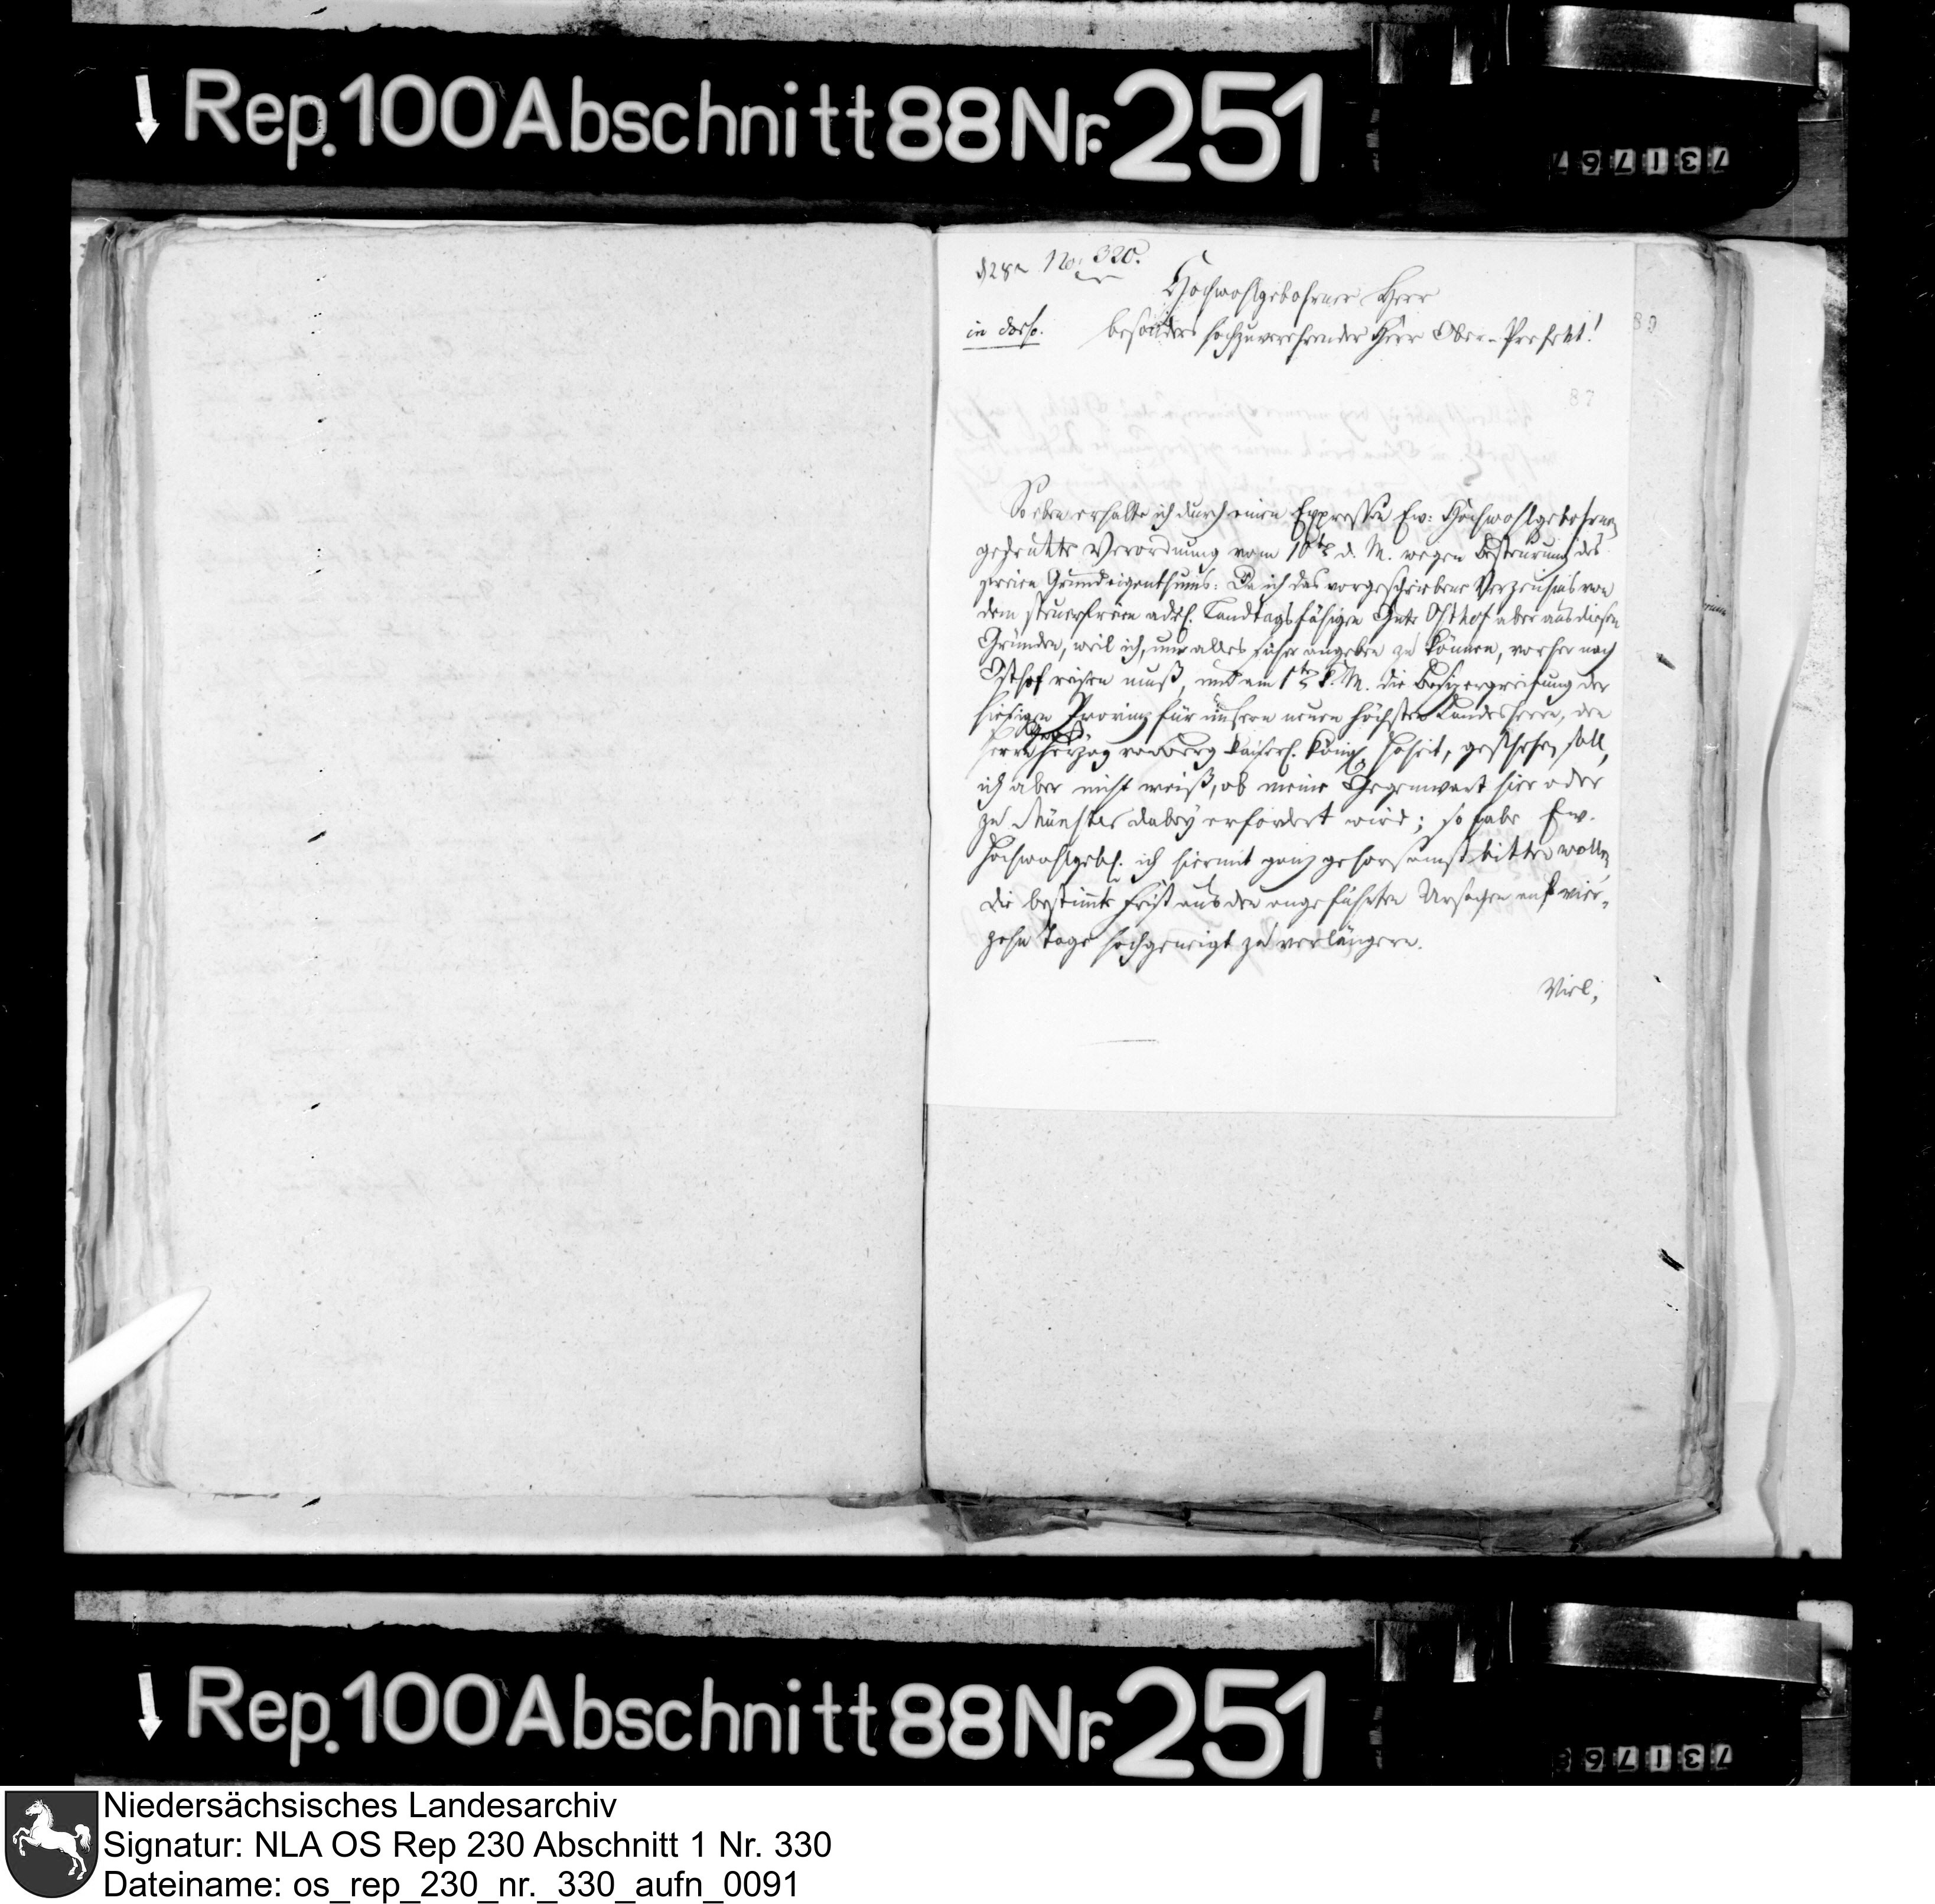 Rep. 100 Abschnitt 88 Nr. 251
731767
No. 320.
Hochwohlgebohrner Herr
besonders hochzuverehrender Herr Ober-Prefekt!
89
87
So eben erhalte ich durch einen Expressen Ew: Hochwohlgebohrnen
gedrukte Verordnung vom 10ten d. M. wegen Besteurung des
freien Grundeigenthums: Da ich das vorgeschriebene Verzeichnis von
dem steuerfreien adel. Landtagsfähigen Gute Osthof aber aus diesen
Gründen, weil ich, um alles sicher angeben zu können, vorher nach
Osthof reisen muß, und am 1ten k. M. die Besizergreifung der
hiesigen Provinz für unsern neuen höchsten Landesherrn, den
Groß
Herrn Herzog von Berg kaiserl. königl. Hoheit, geschehen soll,
ich aber nicht weiß, ob meine Gegenwart hier oder
zu Münster dabey erfordert wird; so habe Ew.
Hochwohlgebl. ich hiermit ganz gehorsamst bitten wollen
die bestimte Frist aus den angeführten Ursachen auf vier-
zehn Tage hochgeneigt zu verlängern.
Viel,
Rep. 100 Abschnitt 88 Nr. 251
Niedersächsisches Landesarchiv
Signatur: NLA OS Rep 230 Abschnitt 1 Nr. 330
Dateiname: os_rep_230_nr._330_aufn_0091